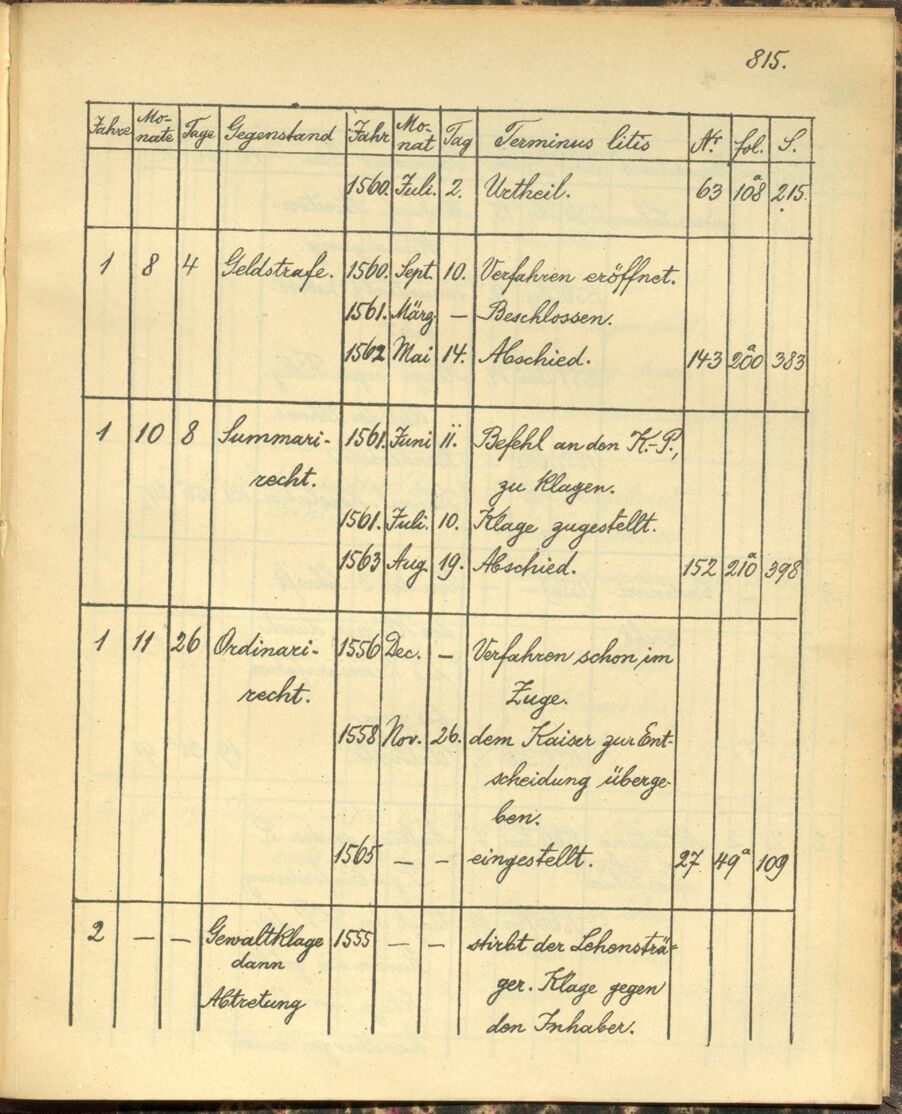 815.
Jahre Mo-nate Tage Gegenstand Jahr Mo-nat Tag Terminus litis Nr. fol. S.
1560. Juli. 2. Urtheil. 63 108a 215.
1 8 4 Geldstrafe. 1560. Sept. 10. Verfahren eröffnet.
1561. März — Beschlossen.
1562 Mai 14. Abschied. 143 200a 383
1 10 8 Summari- 1561. Juni 11. Befehl an den K.-P.,
recht. zu klagen.
1561. Juli. 10. Klage zugestellt.
1563 Aug. 19. Abschied. 152 210a 398
1 11 26 Ordinari- 1556 Dec. — Verfahren schon im
recht. Zuge.
1558 Nov. 26. dem Kaiser zur Ent-
scheidung überge-
ben.
1565 — — eingestellt. 27 49a 109
2 — — Gewaltklage 1555 — — stirbt der Lehensträ-
dann ger. Klage gegen
Abtretung den Inhaber.